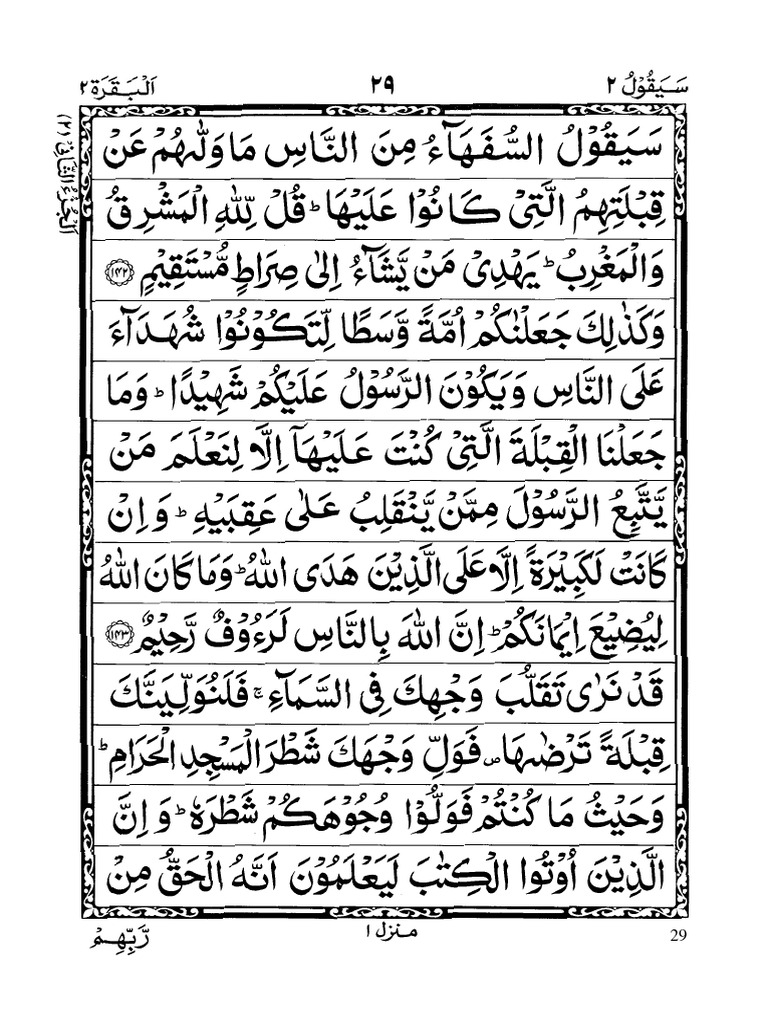 سَيَقُوۡلُ ٢
٢٩
اَلۡبَقَرَة ٢
اَلۡجُزۡءُ الثَّانِیۡ (٢)
سَيَقُوۡلُ السُّفَهَآءُ مِنَ النَّاسِ مَا وَلّٰٮهُمۡ عَنۡ
قِبۡلَتِهِمُ الَّتِىۡ كَانُوۡا عَلَيۡهَا ؕ قُلۡ لِّلّٰهِ الۡمَشۡرِقُ
وَالۡمَغۡرِبُ ؕ يَهۡدِىۡ مَنۡ يَّشَآءُ اِلٰى صِرَاطٍ مُّسۡتَقِيۡمٍ ﴿۱۴۲﴾
وَكَذٰلِكَ جَعَلۡنٰكُمۡ اُمَّةً وَّسَطًا لِّتَکُوۡنُوۡا شُهَدَآءَ
عَلَى النَّاسِ وَيَكُوۡنَ الرَّسُوۡلُ عَلَيۡكُمۡ شَهِيۡدًا ؕ وَمَا
جَعَلۡنَا الۡقِبۡلَةَ الَّتِىۡ كُنۡتَ عَلَيۡهَآ اِلَّا لِنَعۡلَمَ مَنۡ
يَّتَّبِعُ الرَّسُوۡلَ مِمَّنۡ يَّنۡقَلِبُ عَلٰى عَقِبَيۡهِ ؕ وَاِنۡ
كَانَتۡ لَكَبِيۡرَةً اِلَّا عَلَى الَّذِيۡنَ هَدَى اللّٰهُ ؕ وَمَا كَانَ اللّٰهُ
لِيُضِيۡعَ اِيۡمَانَكُمۡ ؕ اِنَّ اللّٰهَ بِالنَّاسِ لَرَءُوۡفٌ رَّحِيۡمٌ ﴿۱۴۳﴾
قَدۡ نَرٰى تَقَلُّبَ وَجۡهِكَ فِى السَّمَآءِ ۚ فَلَنُوَلِّيَنَّكَ
قِبۡلَةً تَرۡضٰٮهَا ۖ فَوَلِّ وَجۡهَكَ شَطۡرَ الۡمَسۡجِدِ الۡحَرَامِ ؕ
وَحَيۡثُ مَا كُنۡتُمۡ فَوَلُّوۡا وُجُوۡهَكُمۡ شَطۡرَهٗ ؕ وَاِنَّ
الَّذِيۡنَ اُوۡتُوا الۡكِتٰبَ لَيَعۡلَمُوۡنَ اَنَّهُ الۡحَـقُّ مِنۡ
29
منزل ١
رَّبِّهِمۡ